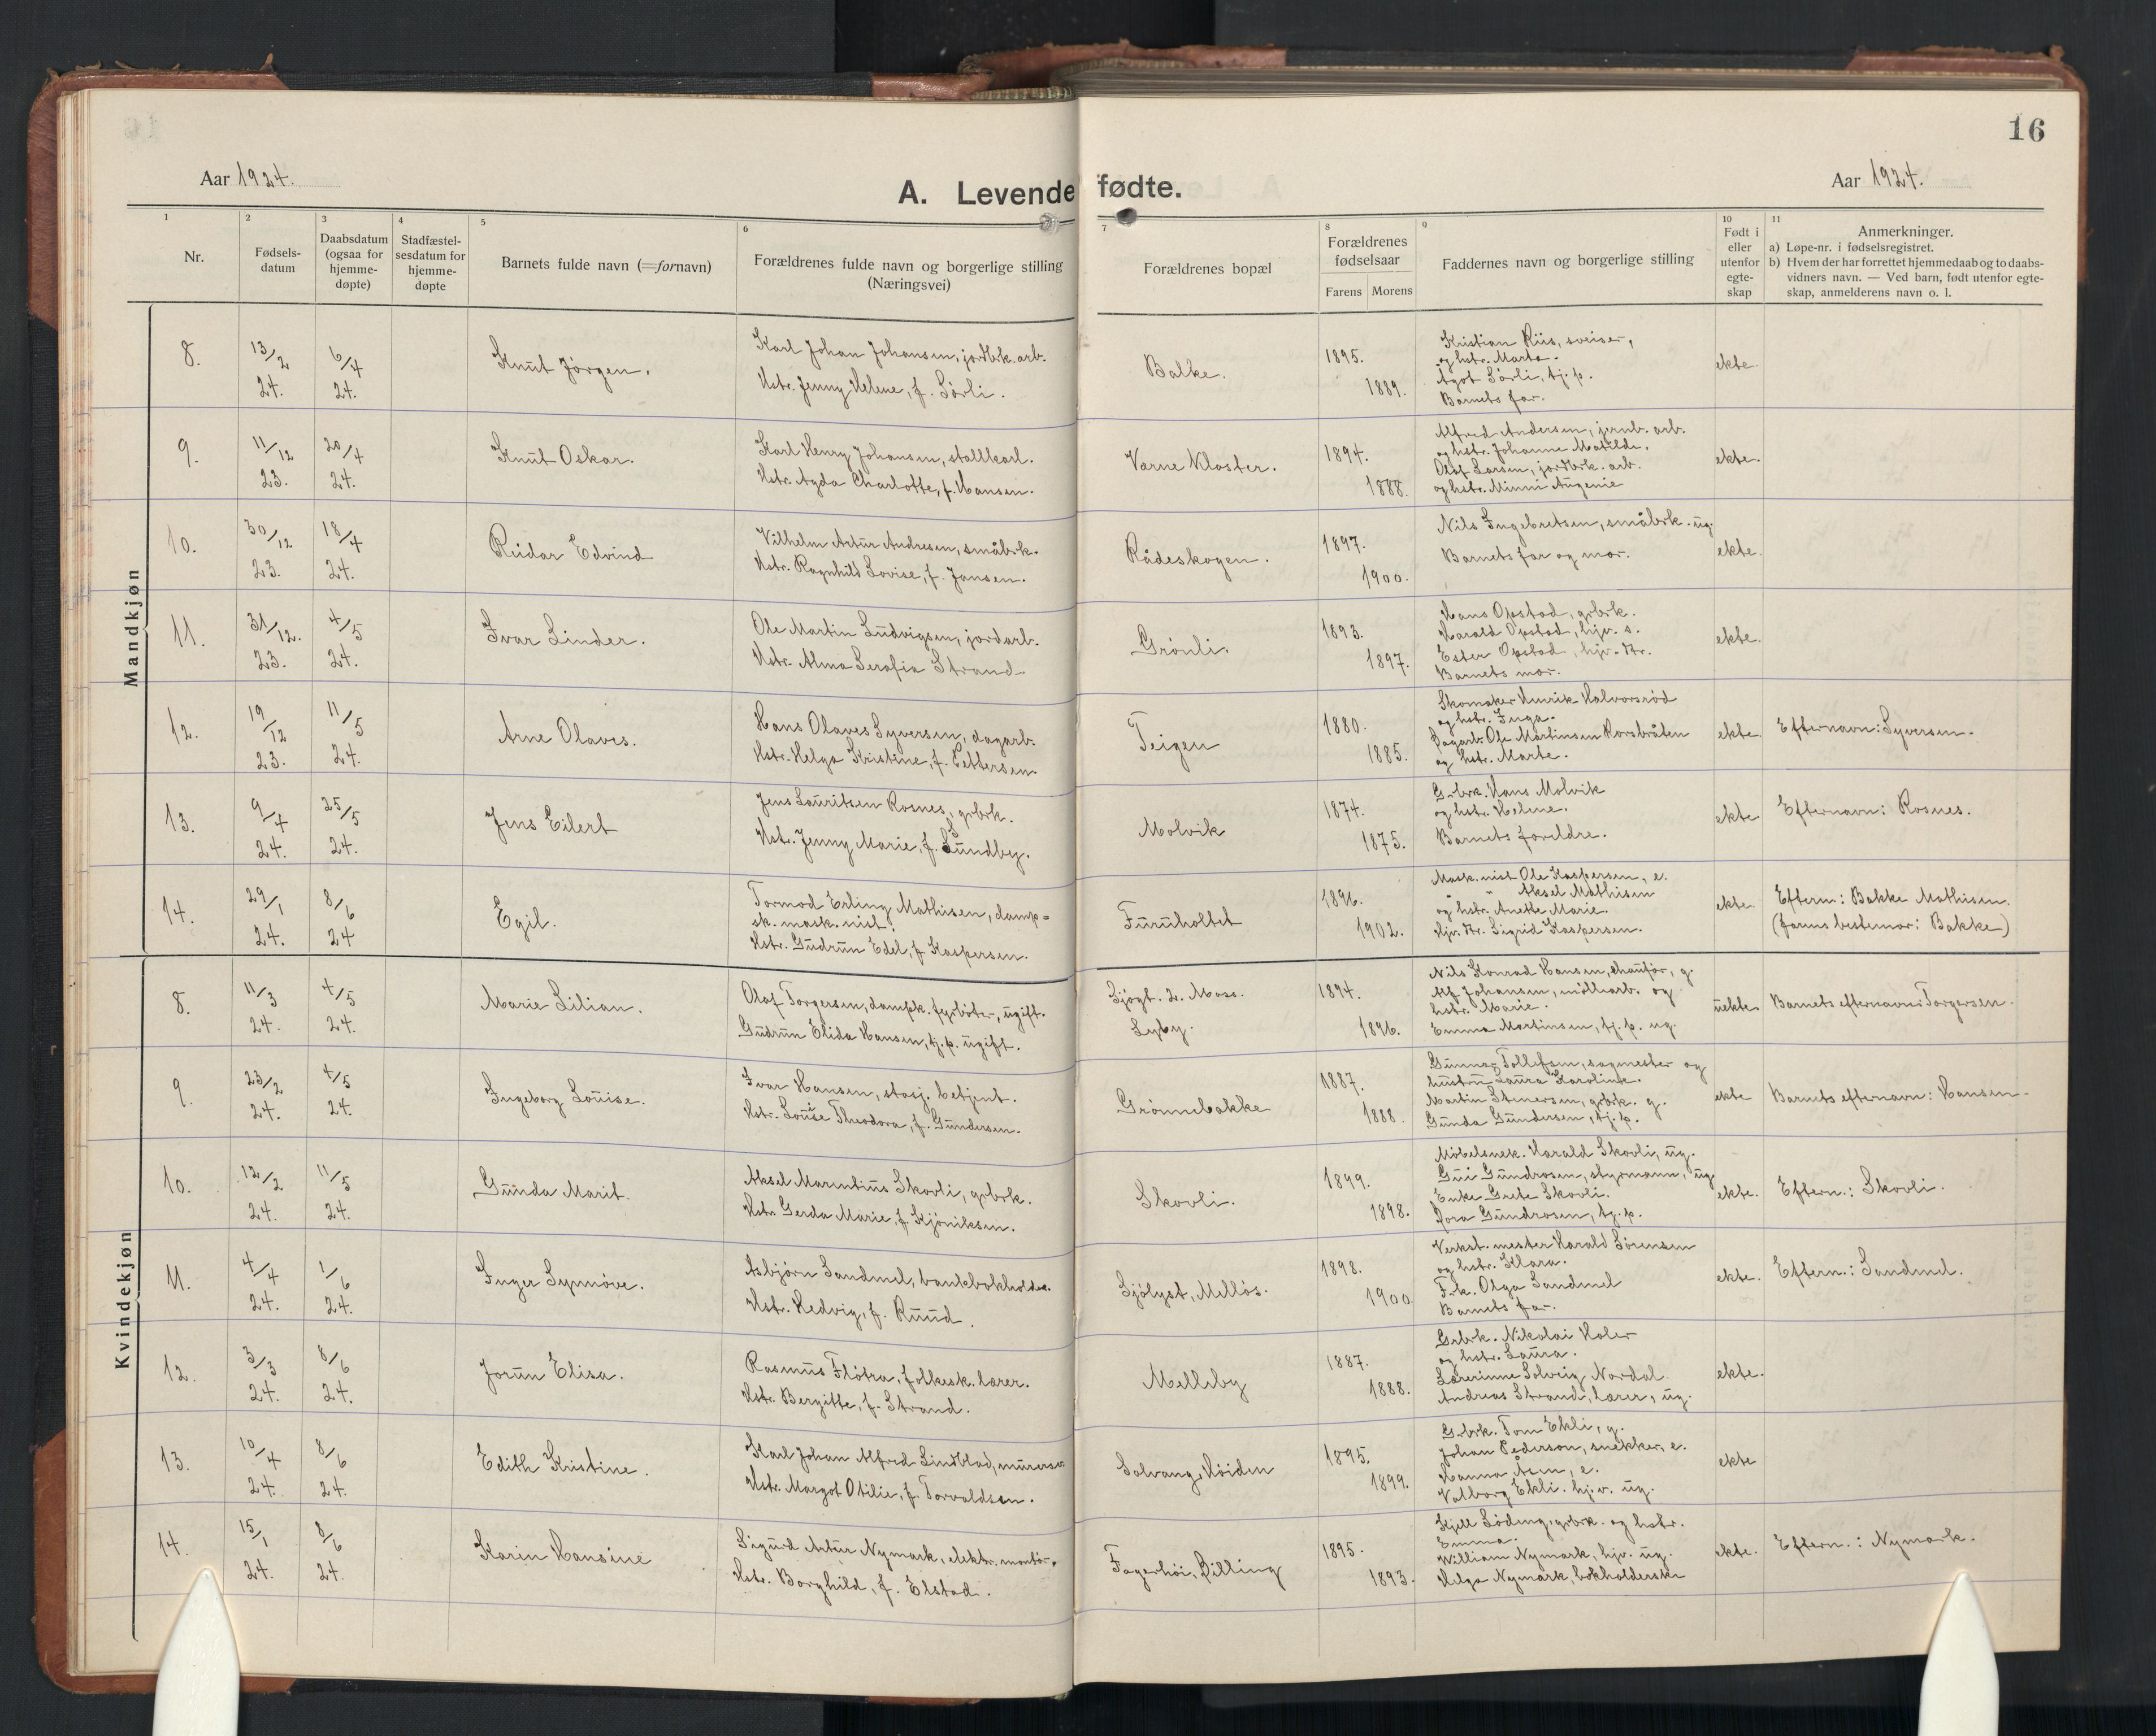 16
Aar 1924.
A. Levende fødte.
Aar 1924.
1
2
3
4
5
6
7
8
9
10
11
Nr.
Fødsels-
datum
Daabsdatum
(ogsaa for
hjemme-
døpte)
Stadfæstel-
sesdatum for
hjemme-
døpte
Barnets fulde navn (=fornavn)
Forældrenes fulde navn og borgerlige stilling
(Næringsvei)
Forældrenes bopæl
Forældrenes
fødselsaar
Farens Morens
Faddernes navn og borgerlige stilling
Født i
eller
utenfor
egte-
skap
Anmerkninger.
a) Løpe-nr. i fødselsregistret.
b) Hvem der har forrettet hjemmedaab og to daabs-
vidners navn. — Ved barn, født utenfor egte-
skap, anmelderens navn o. l.
Mandkjøn
8.
13/2
24.
6/4
24.
Knut Jörgen.
Karl Johan Johansen, jordbrk. arb.
Hstr. Jenny Helene, f. Sörli.
Balke.
1895.
1889.
Kristian Riis, sveiser,
og hstr. Marta.
Ågot Sörli, tj. p.
Barnets far.
ekte.
9.
11/12
23.
20/4
24.
Knut Oskar.
Karl Henry Johansen, stallkarl.
Hstr. Agda Charlotte, f. Hansen.
Varne Kloster.
1894.
1888.
Alfred Andersen, jernb. arb.
og hstr. Johanne Matilde.
Olaf Larsen, jordbrk. arb.
og hstr. Minni Augenie
ekte.
10.
30/12
23.
18/4
24.
Reidar Edvind
Vilhelm Artur Andresen, småbrk.
Hstr. Ragnhild Lovise, f. Jansen.
Rådeskogen.
1897.
1900.
Nils Ingebretsen, småbrk. ug.
Barnets far og mor.
ekte.
11.
31/12.
23.
4/5
24.
Ivar Linder.
Ole Martin Ludvigsen, jordarb.
Hstr. Alma Serafia Strand.
Grönli.
1893.
1897.
Hans Opstad, grbrk.
Harald Opstad, hjv. s.
Ester Opstad, hjv. dtr.
Barnets mor.
ekte.
12.
19/12
23.
11/5
24.
Arne Olaves.
Hans Olaves Syversen, dagarb.
Hstr. Helga Kristine, f. Pettersen.
Teigen
1880.
1885.
Skomaker Henrik Halvorsröd
og hstr. Inga.
Dagarb. Ole Martinsen Korsbråten
og hstr. Marte.
ekte.
Efternavn: Syversen.
13.
9/4
24.
25/5
24.
Jens Eilert
Jens Lauritsen Rosnes, grbrk.
Hstr. Jenny Marie, f. Sundby.
Molvik
1874.
1875.
Grbrk. Hans Molvik
og hstr. Helene.
Barnets foreldre.
ekte
Efternavn: Rosnes.
14.
29/1
24.
8/6
24
Egil.
Tormod Erling Mathisen, damp-
sk. mask.nist.
Hstr. Gudrun Edel, f. Kaspersen.
Furuholtet
1896.
1902.
Mask.nist Ole Kaspersen, e.
" Aksel Mathisen
og hstr. Anette Marie.
Hjv. dtr. Sigrid Kaspersen.
ekte.
Eftern.: Bakke Mathisen.
(farens bestemor: Bakke)
Kvindekjøn
8.
11/3
24.
4/5
24.
Marie Lilian.
Olaf Torgersen, dampsk. fyrböter, ugift.
Gudrun Elida Hansen, tj. p. ugift.
Sjögt. 2. Moss.
Lyby.
1894.
1896.
Nils Konrad Hansen, chauför, g.
Alf Johansen, möllearb. og
hstr. Marie.
Emma Martinsen, tj. p. ug.
uekte.
Barnets efternavn: Torgersen.
9.
23/2
24.
4/5
24.
Ingeborg Louise.
Ivar Hansen, stasj. betjent.
Hstr. Louise Theodora, f. Gundersen.
Grönnebakke
1887.
1888.
Gunnar Tollefsen, sagmester og
hustru Laura Karoline.
Martin Stenersen, grbrk. g.
Gunda Gundersen, tj. p.
ekte
Barnets efternavn: Hansen.
10.
12/2
24.
11/5
24.
Gunda Marit.
Aksel Marentius Skovli, grbrk.
Hstr. Gerda Marie, f. Kjöniksen.
Skovli.
1899.
1898.
Möbelsnek. Harald Skovli, ug.
Gui Gundrosen, styrmann, ug
Enke Grete Skovli.
Dora Gundrosen, tj. p.
ekte.
Eftern.: Skovli.
11.
4/4
24.
1/6
24.
Inger Synnöve.
Asbjörn Sandmel, bankbokholder.
Hstr. Hedvig, f. Ruud.
Sjölyst, Mellös.
1898.
1900.
Verkst.mester Harald Sörensen
og hstr. Klara.
Frk. Olga Sandmel
Barnets far.
ekte.
Eftern.: Sandmel.
12.
3/3
24.
8/6
24.
Jorun Elisa.
Rasmus Flötra, folkesk. lærer.
Hstr. Bergitte, f. Strand.
Melleby
1887.
1888.
Grbrk. Nikolai Holer
og hstr. Laura.
Lærerinne Solveig Nordal
Andreas Strand, lærer, ug.
ekte.
13.
10/4
24.
8/6
24.
Edith Kristine.
Karl Johan Alfred Lindblad, murersv.
Hstr. Margot Otilie, f. Torvaldsen.
Solvang, Höiden
1895.
1899.
Grbrk. Tom Ekli, g.
Johan Pederson, snekker, e.
Hanna Åsen, e.
Valborg Ekli. hj.v. ug.
ekte
14.
15/1
24.
8/6
24.
Karin Hansine
Sigurd Artur Nymark, elektr. montör.
Hstr. Borghild, f. Elstad.
Fagerhöi, Dilling
1895.
1893.
Kjell Löding, grbrk. og hstr.
Emma.
William Nymark, hjv. ug.
Helga Nymark, bokholderske
ekte.
Eftern.: Nymark.